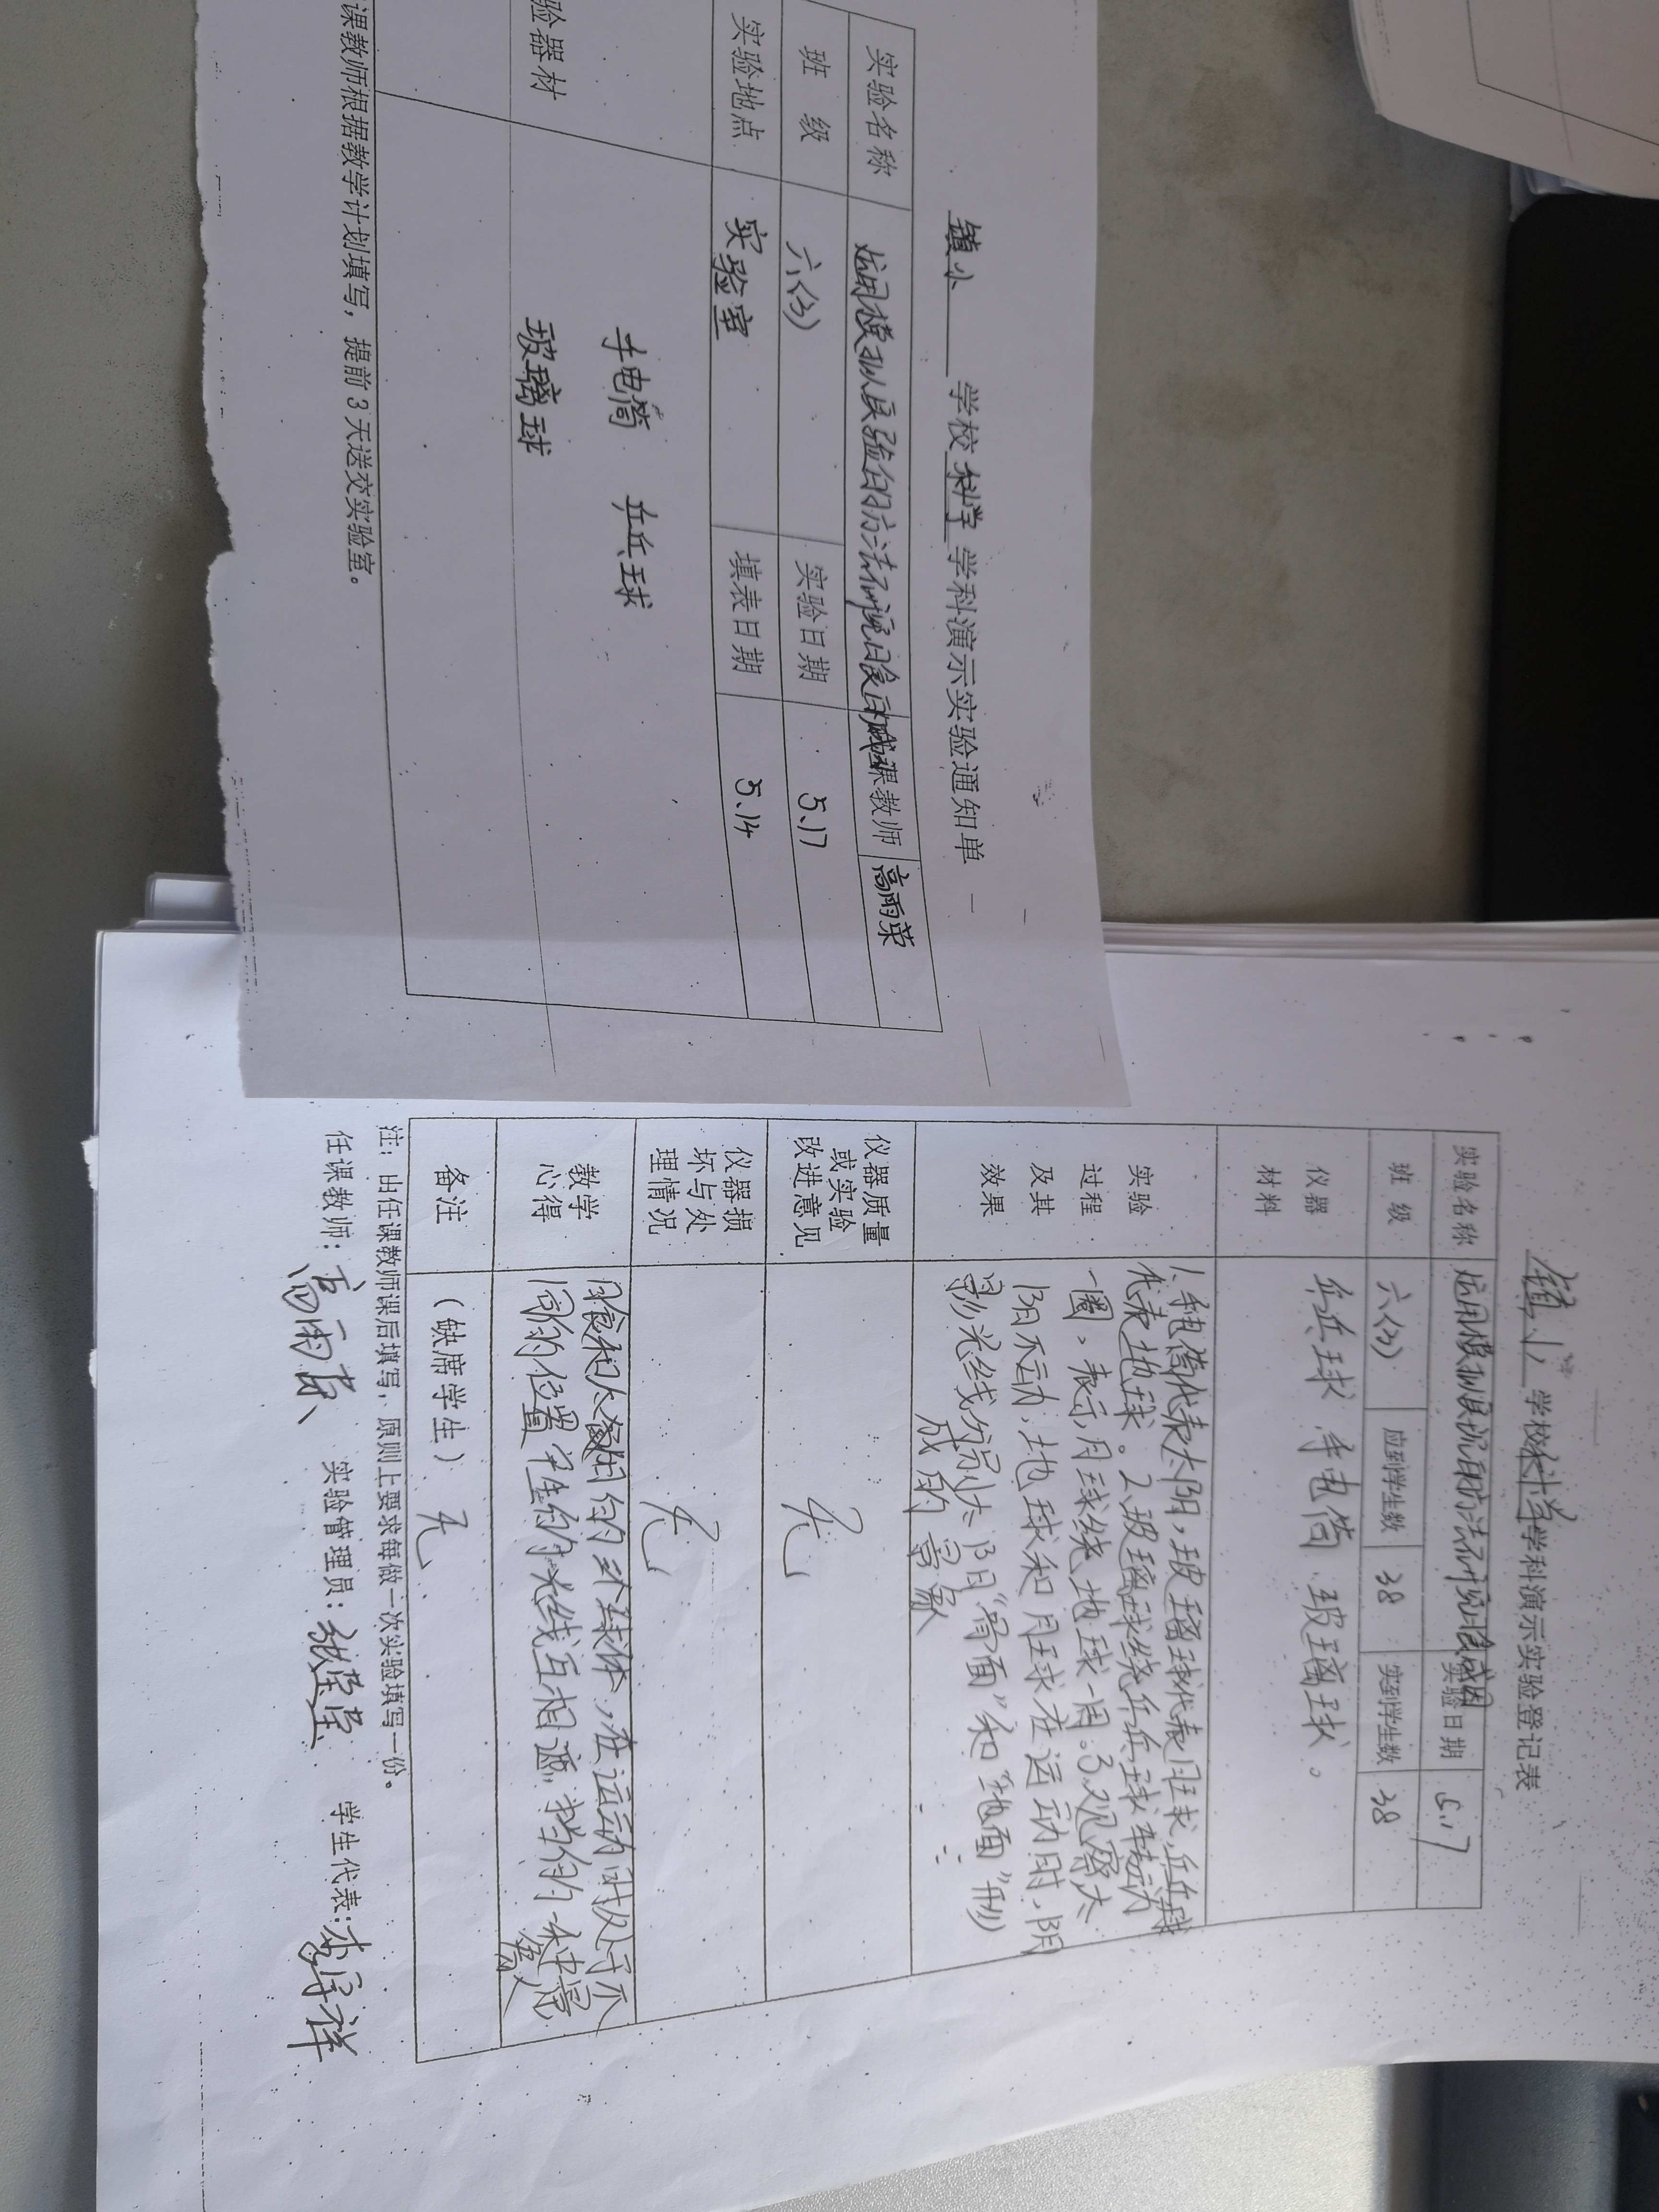 镇小 学校 科学 学科演示实验通知单
实验名称 运用模拟实验的方法研究日食成因 任课教师 高雨荣
班 级 六(3) 实验日期 5.17
实验地点 实验室 填表日期 5.14
验器材 手电筒 乒乓球
玻璃球
课教师根据教学计划填写，提前3天送交实验室。
镇小 学校 科学 学科演示实验登记表
实验名称 运用模拟 方法研究日食成因 实验日期 5.17
班 级 六(3) 应到学生数 38 实到学生数 38
仪器
材料
乒乓球 手电筒 玻璃球。
实验
过程
及其
效果
1.手电筒代表太阳,玻璃球代表月球,乒乓球
代表地球。2.玻璃球绕乒乓球转动
一圈,表示月球绕地球一周.3.观察太
阳不动,地球和月球在运动时,阴
影光线 太阳"背面"和"地面"形
成的 景象
仪器质量
或实验
改进意见
无
仪器损
坏与处
理情况
无
教学
心得
日食和 的 球体,在运动时处于不
同的位置 产生的光线互相遮挡的一种
备注 (缺席学生) 无
注：由任课教师课后填写，原则上要求每做一次实验填写一份。
任课教师: 高雨荣 实验管理员: 张莹莹 学生代表: 李泽祥